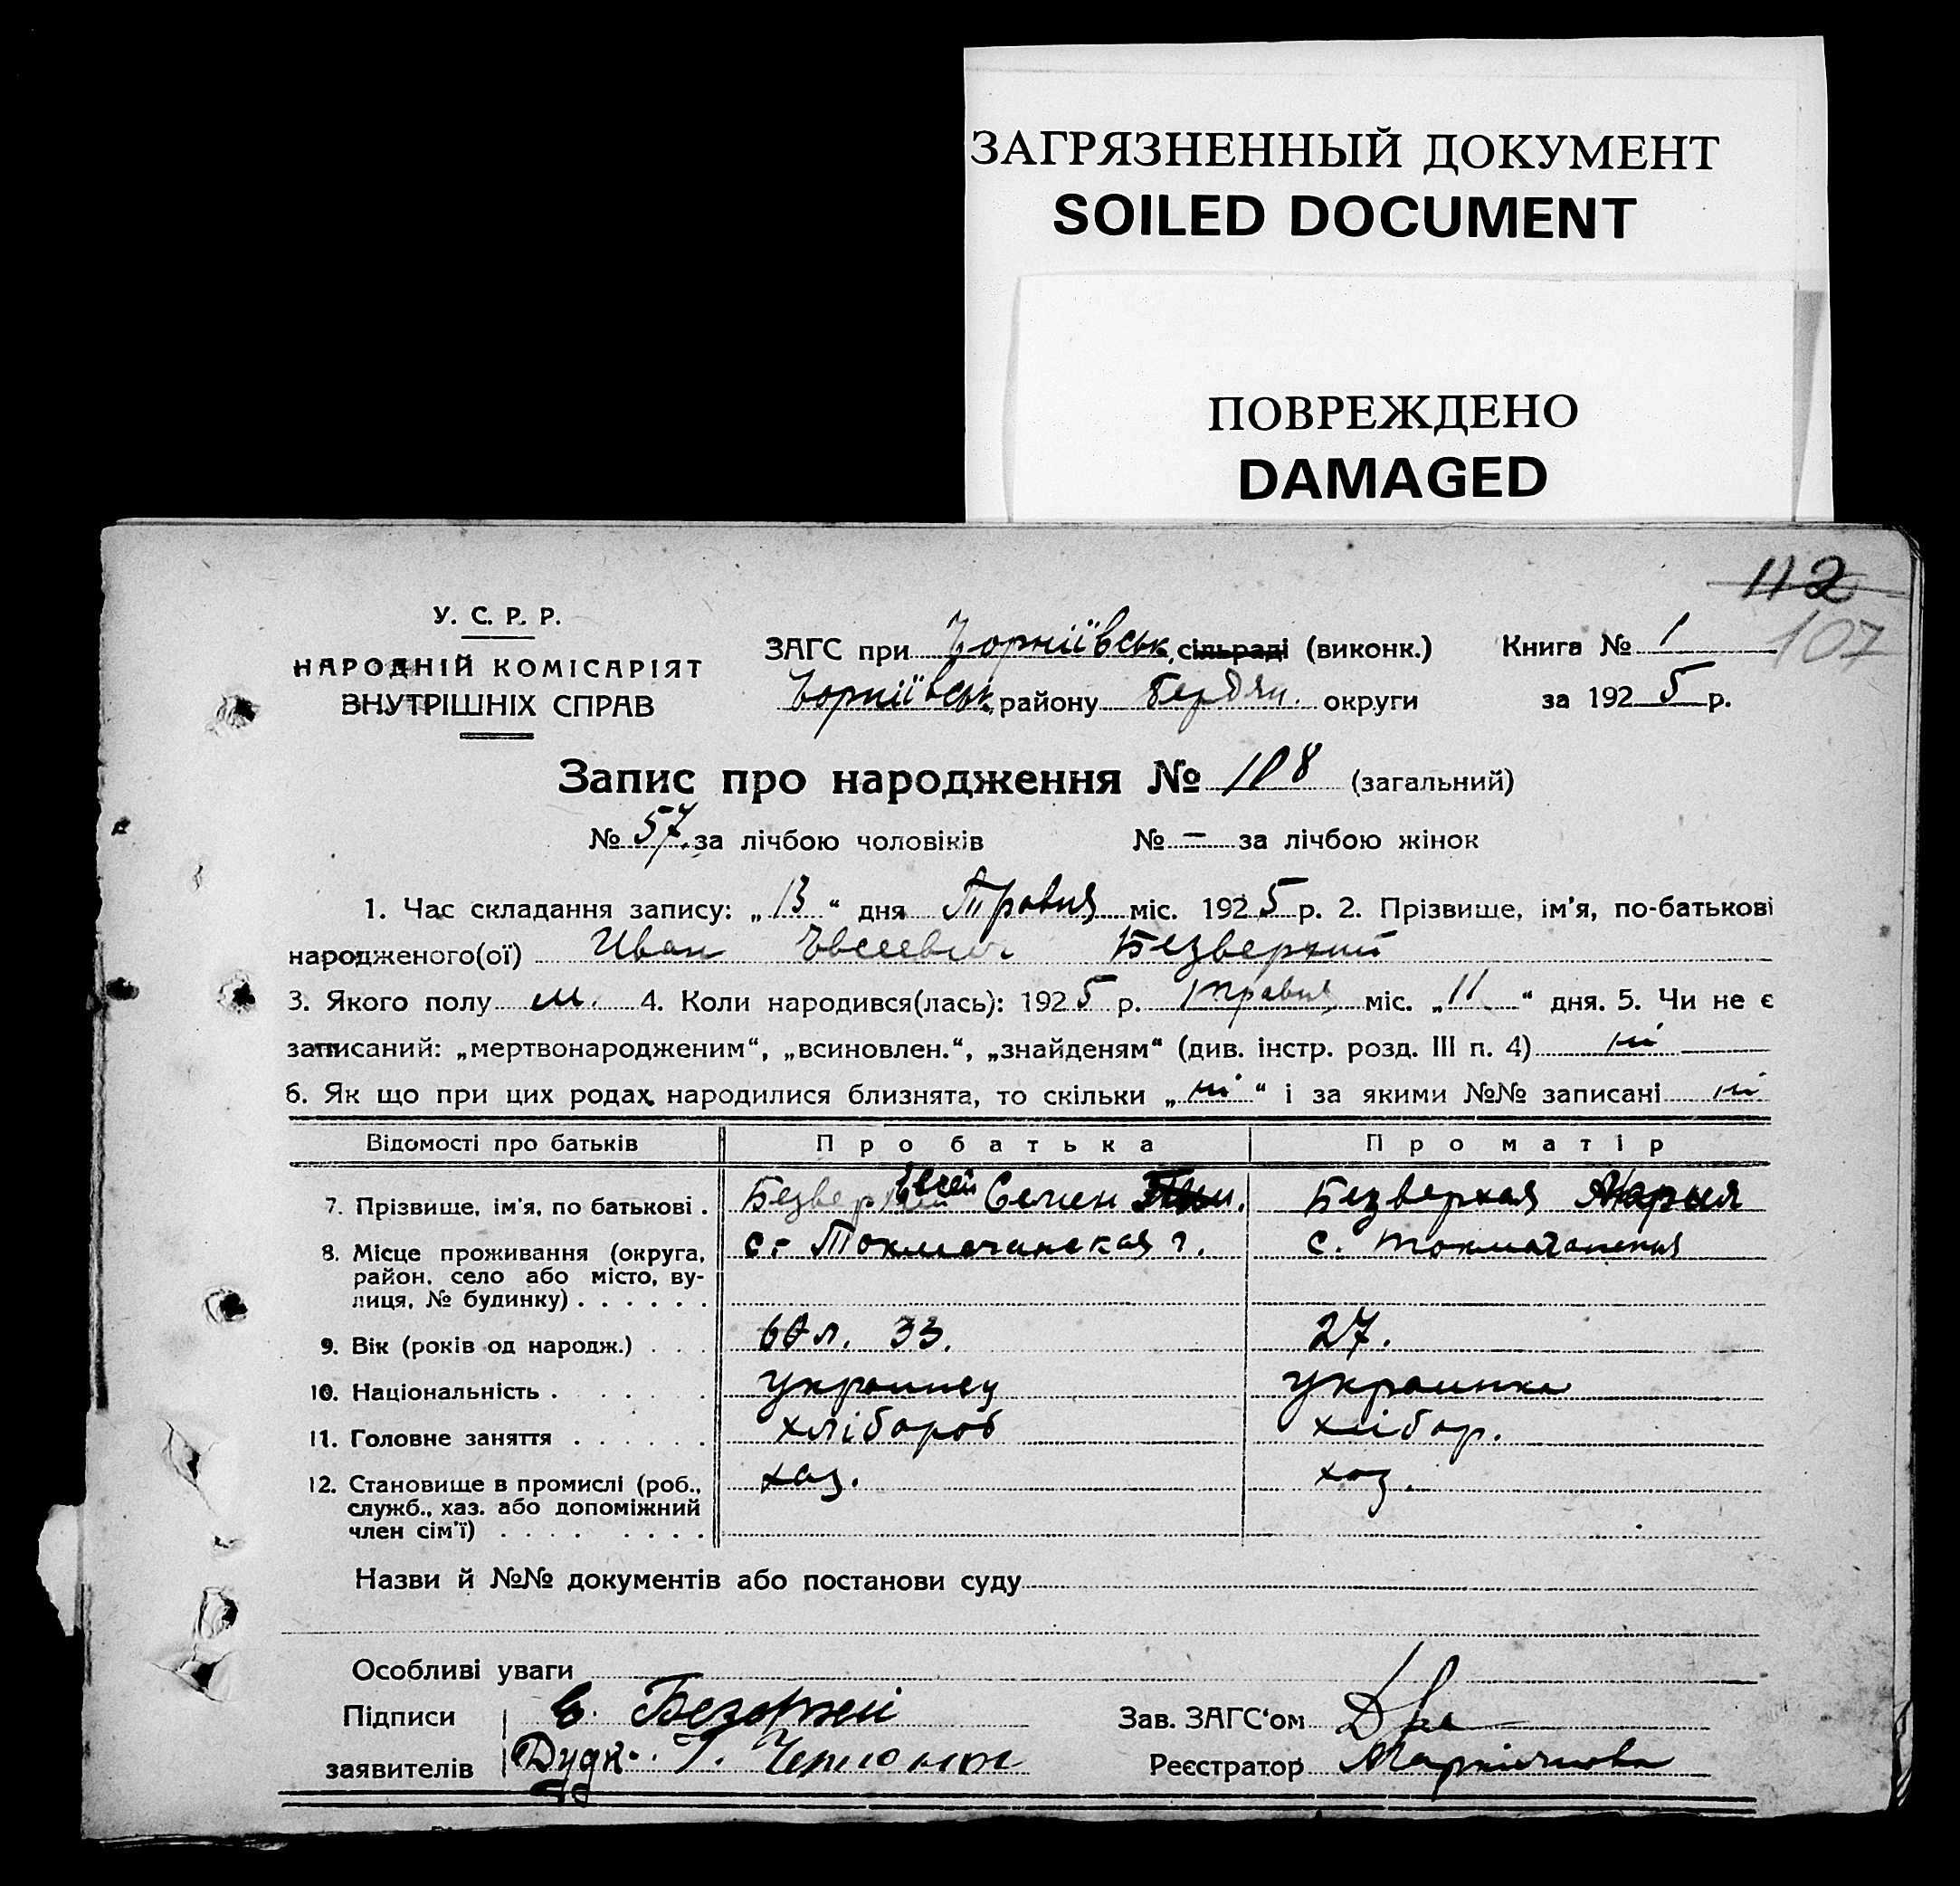 ЗАГРЯЗНЕННЫЙ ДОКУМЕНТ
SOILED DOCUMENT
ПОВРЕЖДЕНО
DAMAGED
112
107
У. С. Р. Р.
НАРОДНІЙ КОМІСАРІЯТ
ВНУТРІШНІХ СПРАВ
ЗАГС при Чорніївськ. сільраді (виконк.) Книга № 1
Чорніївськ. району Бердян. округи за 1925 р.
Запис про народження № 108 (загальний)
№ 57 за лічбою чоловіків № – за лічбою жінок
1. Час складання запису: „13“ дня Травня міс. 1925 р. 2. Прізвище, ім'я, по-батькові
народженого(ої) Иван Евсеевич Безверхий
3. Якого полу м. 4. Коли народився(лась): 1925 р. травня міс. „11“ дня. 5. Чи не є
записаний: „мертвонародженим“, „всиновлен.“, „знайденям“ (див. інстр. розд. III п. 4) ні
6. Як що при цих родах народилися близнята, то скільки „ні“ і за якими №№ записані ні
Відомості про батьків Про батька Про матір
7. Прізвище, ім'я, по батькові . Безверхий Евсей Семен Безверхая Мария
8. Місце проживання (округа, район, село або місто, вулиця, № будинку) . . . . . . с. Токмачанская с. Токмачанская
9. Вік (років од народж.) . . . 33. 27.
10. Національність . . . . . . украинец украинка
11. Головне заняття . . . . . . хлібороб хлібор.
12. Становище в промислі (роб., служб., хаз. або допоміжний член сім'ї) . . . . . . . . хаз. хоз.
Назви й №№ документів або постанови суду
Особливі уваги
Підписи Е. Зав. ЗАГС'ом
заявителів Реєстратор